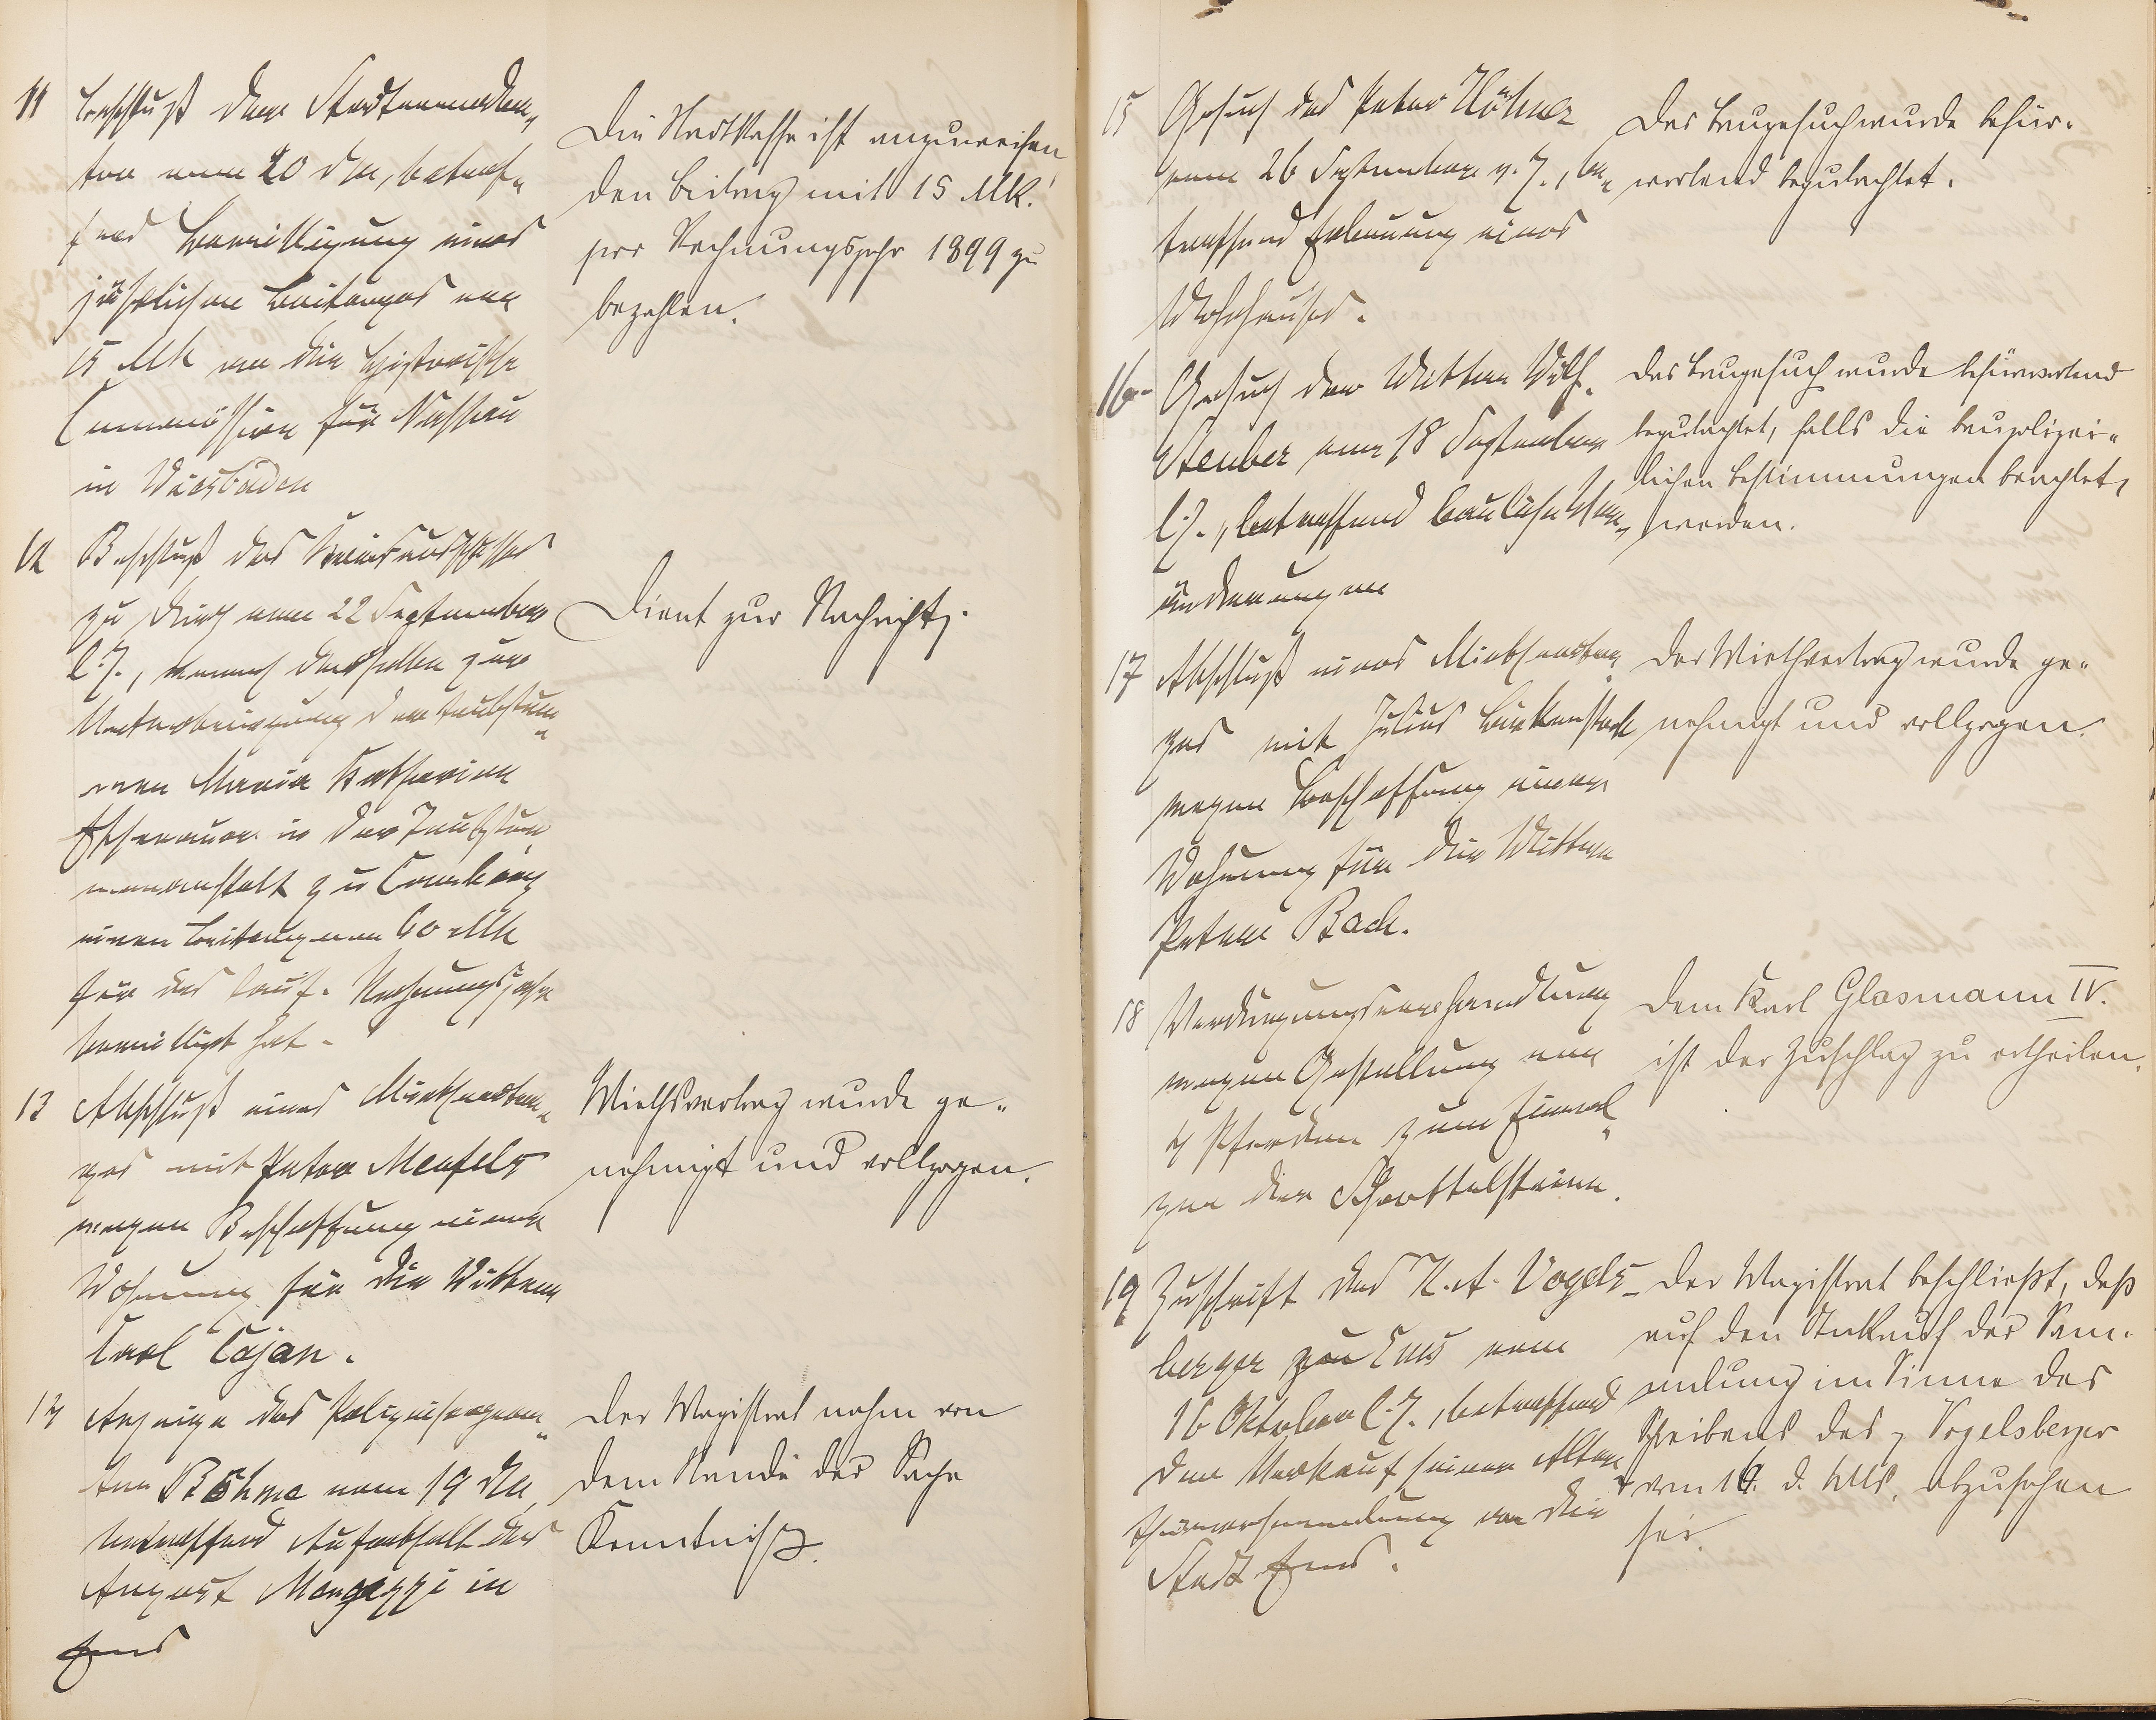 11 Beschluß der Stadtverordne-
ten vom 20 d Mts, betref-
fend Bewilligung eines
jährlichen Beitrages von
15 Mk an die historische
Commission für Nassau
in Wiesbaden
Die Stadtkasse ist anzuweisen
den Beitrag mit 15 Mk.
pro Rechnungsjahr 1899 zu
bezahlen.
12 Beschluß des Kreisausschusses
zu Diez vom 22 September
l. J., wonach derselbe zur
Unterbringung der taubstum-
men Maria Katharina
in der Taubstum-
menanstalt zu Camberg
einen Beitrag von 60 Mk
für das lauf. Rechnungsjahr
bewilligt hat.
Dient zur Nachricht.
13 Abschluß eines Miethvertra-
ges mit Peter Meufels
wegen Beschaffung einer
Wohnung für die Wittwe
Carl Cojan.
Miethsvertrag wurde ge-
nehmigt und vollzogen.
14 Anzeige des Polizeisergean-
ten Böhme vom 19 d Mts,
betreffend Aufenthalt des
August Mongazzi in
Ems
Der Magistrat nahm von
dem Stande der Sache
Kenntniß.
15 Gesuch des Peter Höhner
vom 26 September v. J., be-
treffend Erbauung eines
Wohnhauses.
Das Baugesuch wurde befür-
wortend begutachtet.
16 Gesuch der Wittwe Wilh.
Steuber vom 18 September
l. J., betreffend bauliche Ver-
änderungen
Das Baugesuch wurde befürwortend
begutachtet, falls die baupolizei-
lichen Bestimmungen beachtet
werden.
17 Abschluß eines Miethvertra-
ges mit Julius Birkenstock
wegen Beschaffung einer
Wohnung für die Wittwe
Peter Bach.
Der Miethvertrag wurde ge-
nehmigt und vollzogen.
18 Verdingungsverhandlung
wegen Gestellung von
4 Pferden zum Einwal-
zen der Schottelsteine.
Dem Karl Glasmann IV.
ist der Zuschlag zu ertheilen.
19 Zuschrift des K. A. Vogels-
berger zu Ems vom
16 Oktober l. J., betreffend
den Verkauf seiner Alter-
thümersammlung an die
Stadt Ems.
Der Magistrat beschließt, daß
auf den Ankauf der Sam-
mlung im Sinne des
Schreibens des Vogelsberger
vom 16. d. Mts. abzusehen
sei.